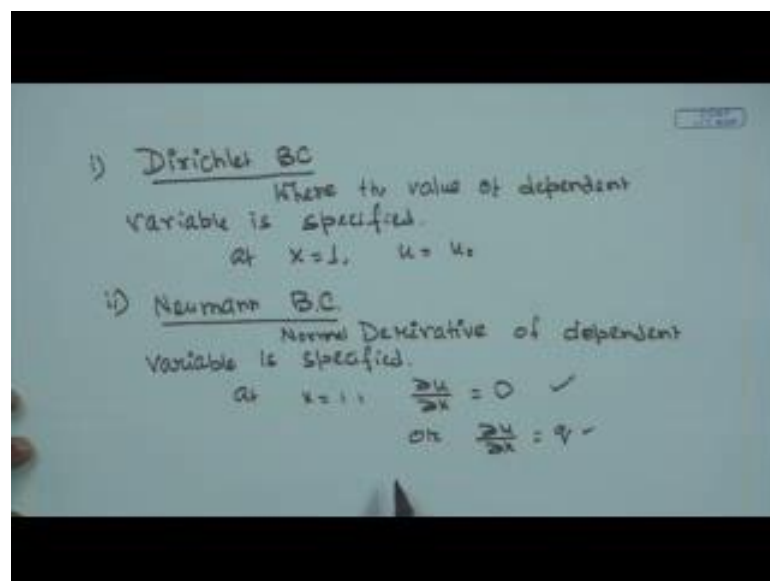 i) Dirichlet BC
Where the value of dependent
variable is specified.
at x=1, u = u₀
ii) Neumann B.C.
Normal Derivative of dependent
variable is specified.
at x=1, ∂u/∂x = 0 ✓
or ∂u/∂x = q